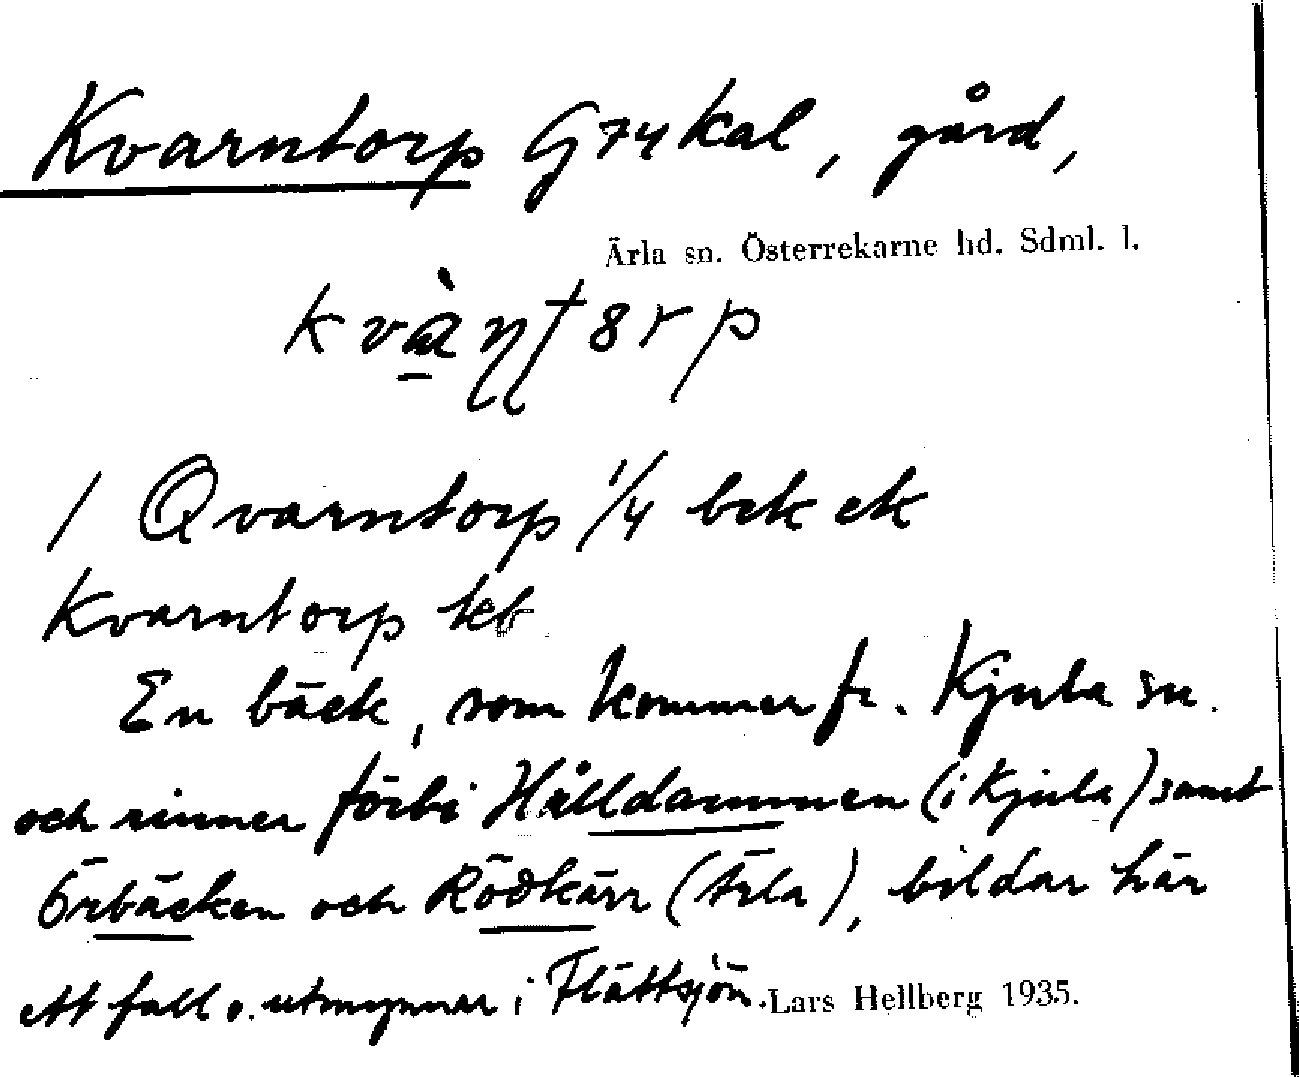 Kvarntorp G74 kal, gård,
Ärla sn. Österrekarne hd. Sdml. l.
1 Qvarntorp 1/4 bek ek
Kvarntorp keb
En bäck, som kommer fr. Kjula sn.
och rinner förbi Hålldammen (i Kjula) samt
Örbäcken och Rödkärr (Ärla), bildar här
ett fall o. utmynnar i Flättsjön.
Lars Hellberg 1935.